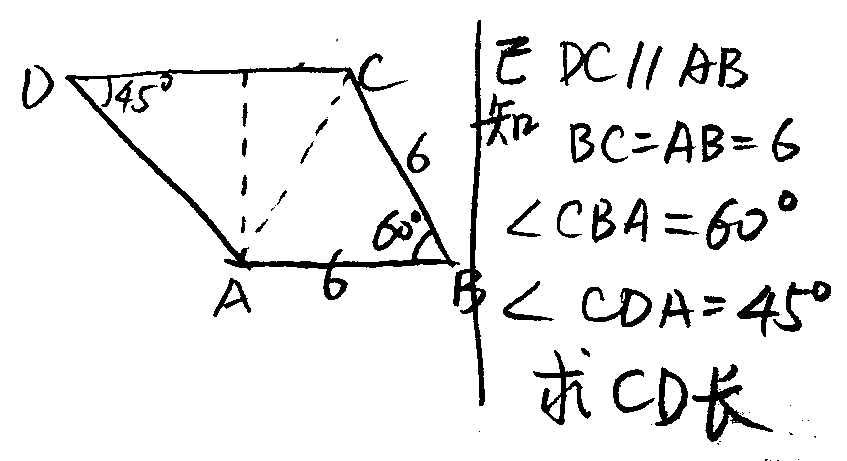 D
45°
C
6
60°
A
6
B
已知 DC//AB
BC=AB=6
<CBA=60°
<CDA=45°
求CD长